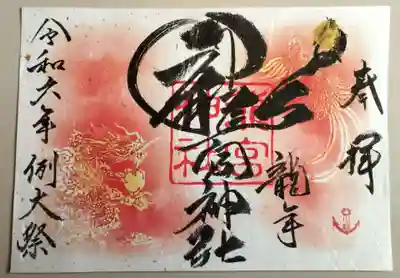 奉拝
龍年
龍宮神社
令和六年例大祭